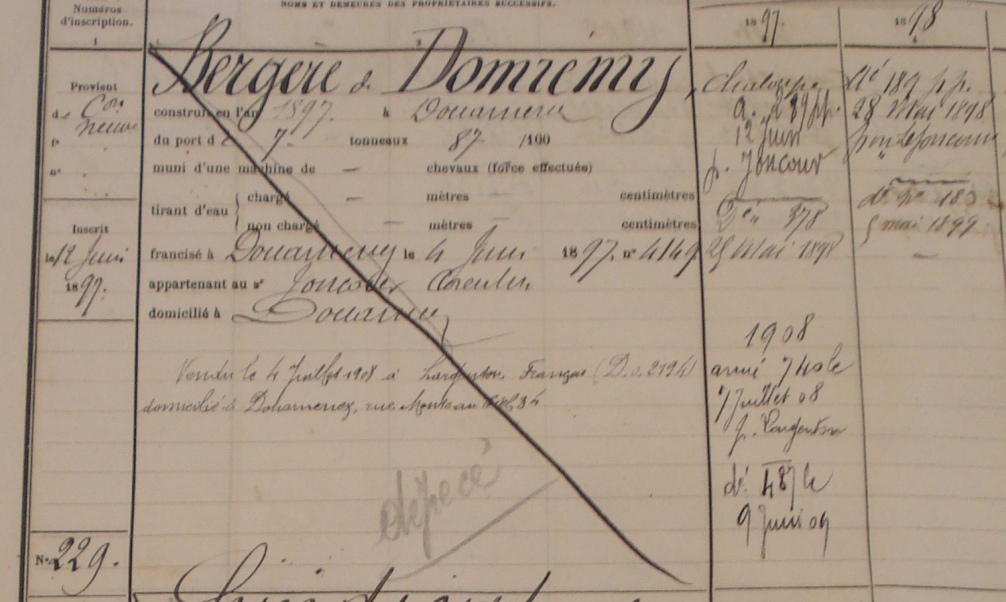 NOMS ET DEMEURES DES PROPRIÉTAIRES SUCCESSIFS.
Numéros
d'inscription.
1
1897.
1898
Bergère de Domrémy,
Provient
de Con
neuve
construit en l'an 1897. à Douarnenez
du port de 7. tonneaux 87 /100
muni d'une machine de — chevaux (force effectuée)
tirant d'eau
chargé — mètres — centimètres
non chargé — mètres — centimètres
Inscrit
le 12 Juin
1897.
francisé à Douarnenez le 4 Juin 1897. n° 4149
appartenant au sr Joncour Corentin
domicilié à Douarnenez
Vendu le 4 Juillet 1908 à Largenton, François (D. 2194)
domicilié à Douarnenez, rue
dépecé
N° 229.
Chaloupe
12 Juin
p. Joncour
378
25 Mai 1898
1908
armé
7 Juillet 08
p. Largenton
dé. 487
9 Juin 09
dé 189 p.p.
28 Mai 1898
pon le Joncour
5 mai 1899